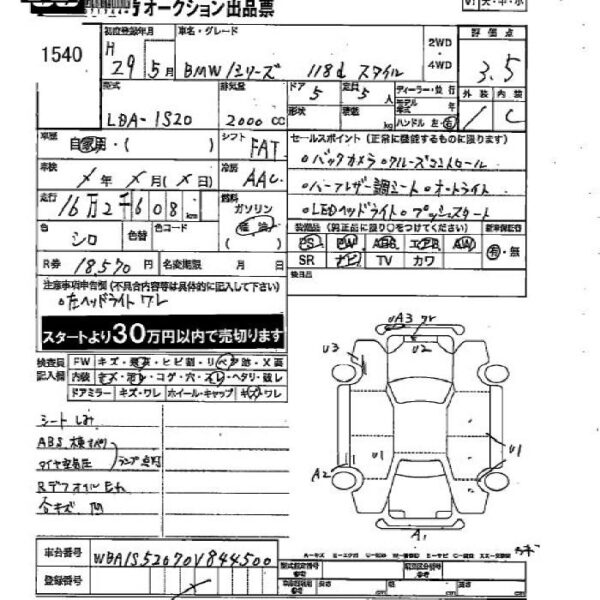 オークション出品票
1540
初度登録年月 車名・グレード 2WD ・4WD 評価点
H 29年 5月 BMW 1シリーズ 118d スタイル 3.5
型式 排気量 ドア 定員 ディーラー・並行 外装 内装
LDA-1S20 2000cc 5 5人 モデル年式 年 / C
形状 積載 kg ハンドル 左・右
車歴 自家用・( ) シフト FAT セールスポイント(正常に機能するものに限ります)
車検 年 月( 日) 冷房 AAC
○バックカメラ○クルーズコントロール
○ハーフレザー調シート○オートライト
○LEDヘッドライト○プッシュスタート
走行 16万2千608km 燃料 ガソリン 軽油
色 シロ 色替 色コード
装備品(純正品に限り○をつけてください) 新車保証書
PS PW ABS エアB AW 有・無
SR ナビ TV カワ
R券 18,570円 名変期限 月 日
注意事項申告欄(不具合内容等は具体的に記入して下さい)
○左ヘッドライト ワレ
スタートより30万円以内で売切ります
検査員記入欄 FW キズ・飛石・ヒビ割・リペア跡・X要
内装 キズ・汚レ・コゲ・穴・スレ・ヘタリ・破レ
ドアミラー キズ・ワレ ホイール・キャップ キズ・ワレ
UA3 ワレ
U3 U2
シートしみ
ABS、横すべり
タイヤ空気圧 ランプ点灯
Rデフオイルモレ
小キズ、凹
A2 U1 U1
A1
車台番号 WBA1S52070V844500
登録番号
A-キズ